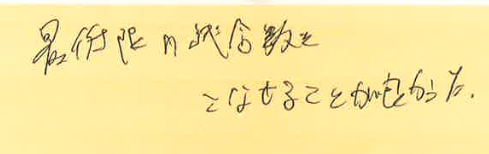 最低限の試合数を
こなせることが かった.